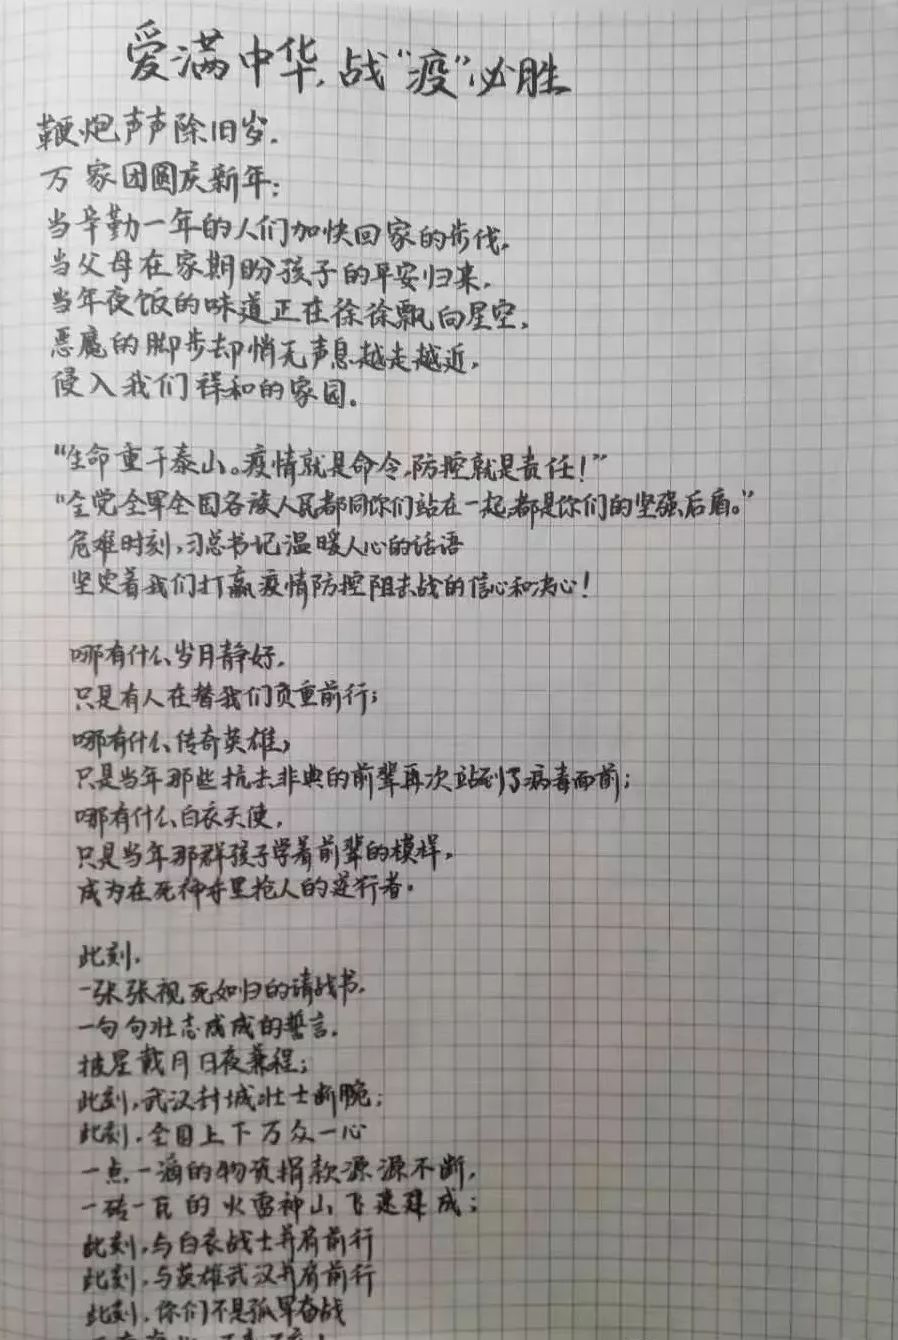 爱满中华,战"疫"必胜
鞭炮声声除旧岁,
万家团圆庆新年;
当辛勤一年的人们加快回家的步伐,
当父母在家期盼孩子的早安归来,
当年夜饭的味道正在徐徐飘向星空,
恶魔的脚步却悄无声息越走越近,
侵入我们祥和的家园。
"生命重于泰山。疫情就是命令,防控就是责任!"
"全党全军全国各族人民都同你们站在一起,都是你们的坚强后盾。"
危难时刻,习总书记温暖人心的话语
坚定着我们打赢疫情防控阻击战的信心和决心!
哪有什么岁月静好,
只是有人在替我们负重前行;
哪有什么传奇英雄,
只是当年那些抗击非典的前辈再次站到了病毒面前;
哪有什么白衣天使,
只是当年那群孩子学着前辈的模样,
成为在死神手里抢人的逆行者。
此刻,
一张张视死如归的请战书,
一句句壮志成城的誓言,
披星戴月日夜兼程;
此刻,武汉封城壮士断腕;
此刻,全国上下万众一心
一点一滴的物资捐款源源不断,
一砖一瓦的火雷神山飞速建成;
此刻,与白衣战士并肩前行
此刻,与英雄武汉并肩前行
此刻,你们不是孤军奋战